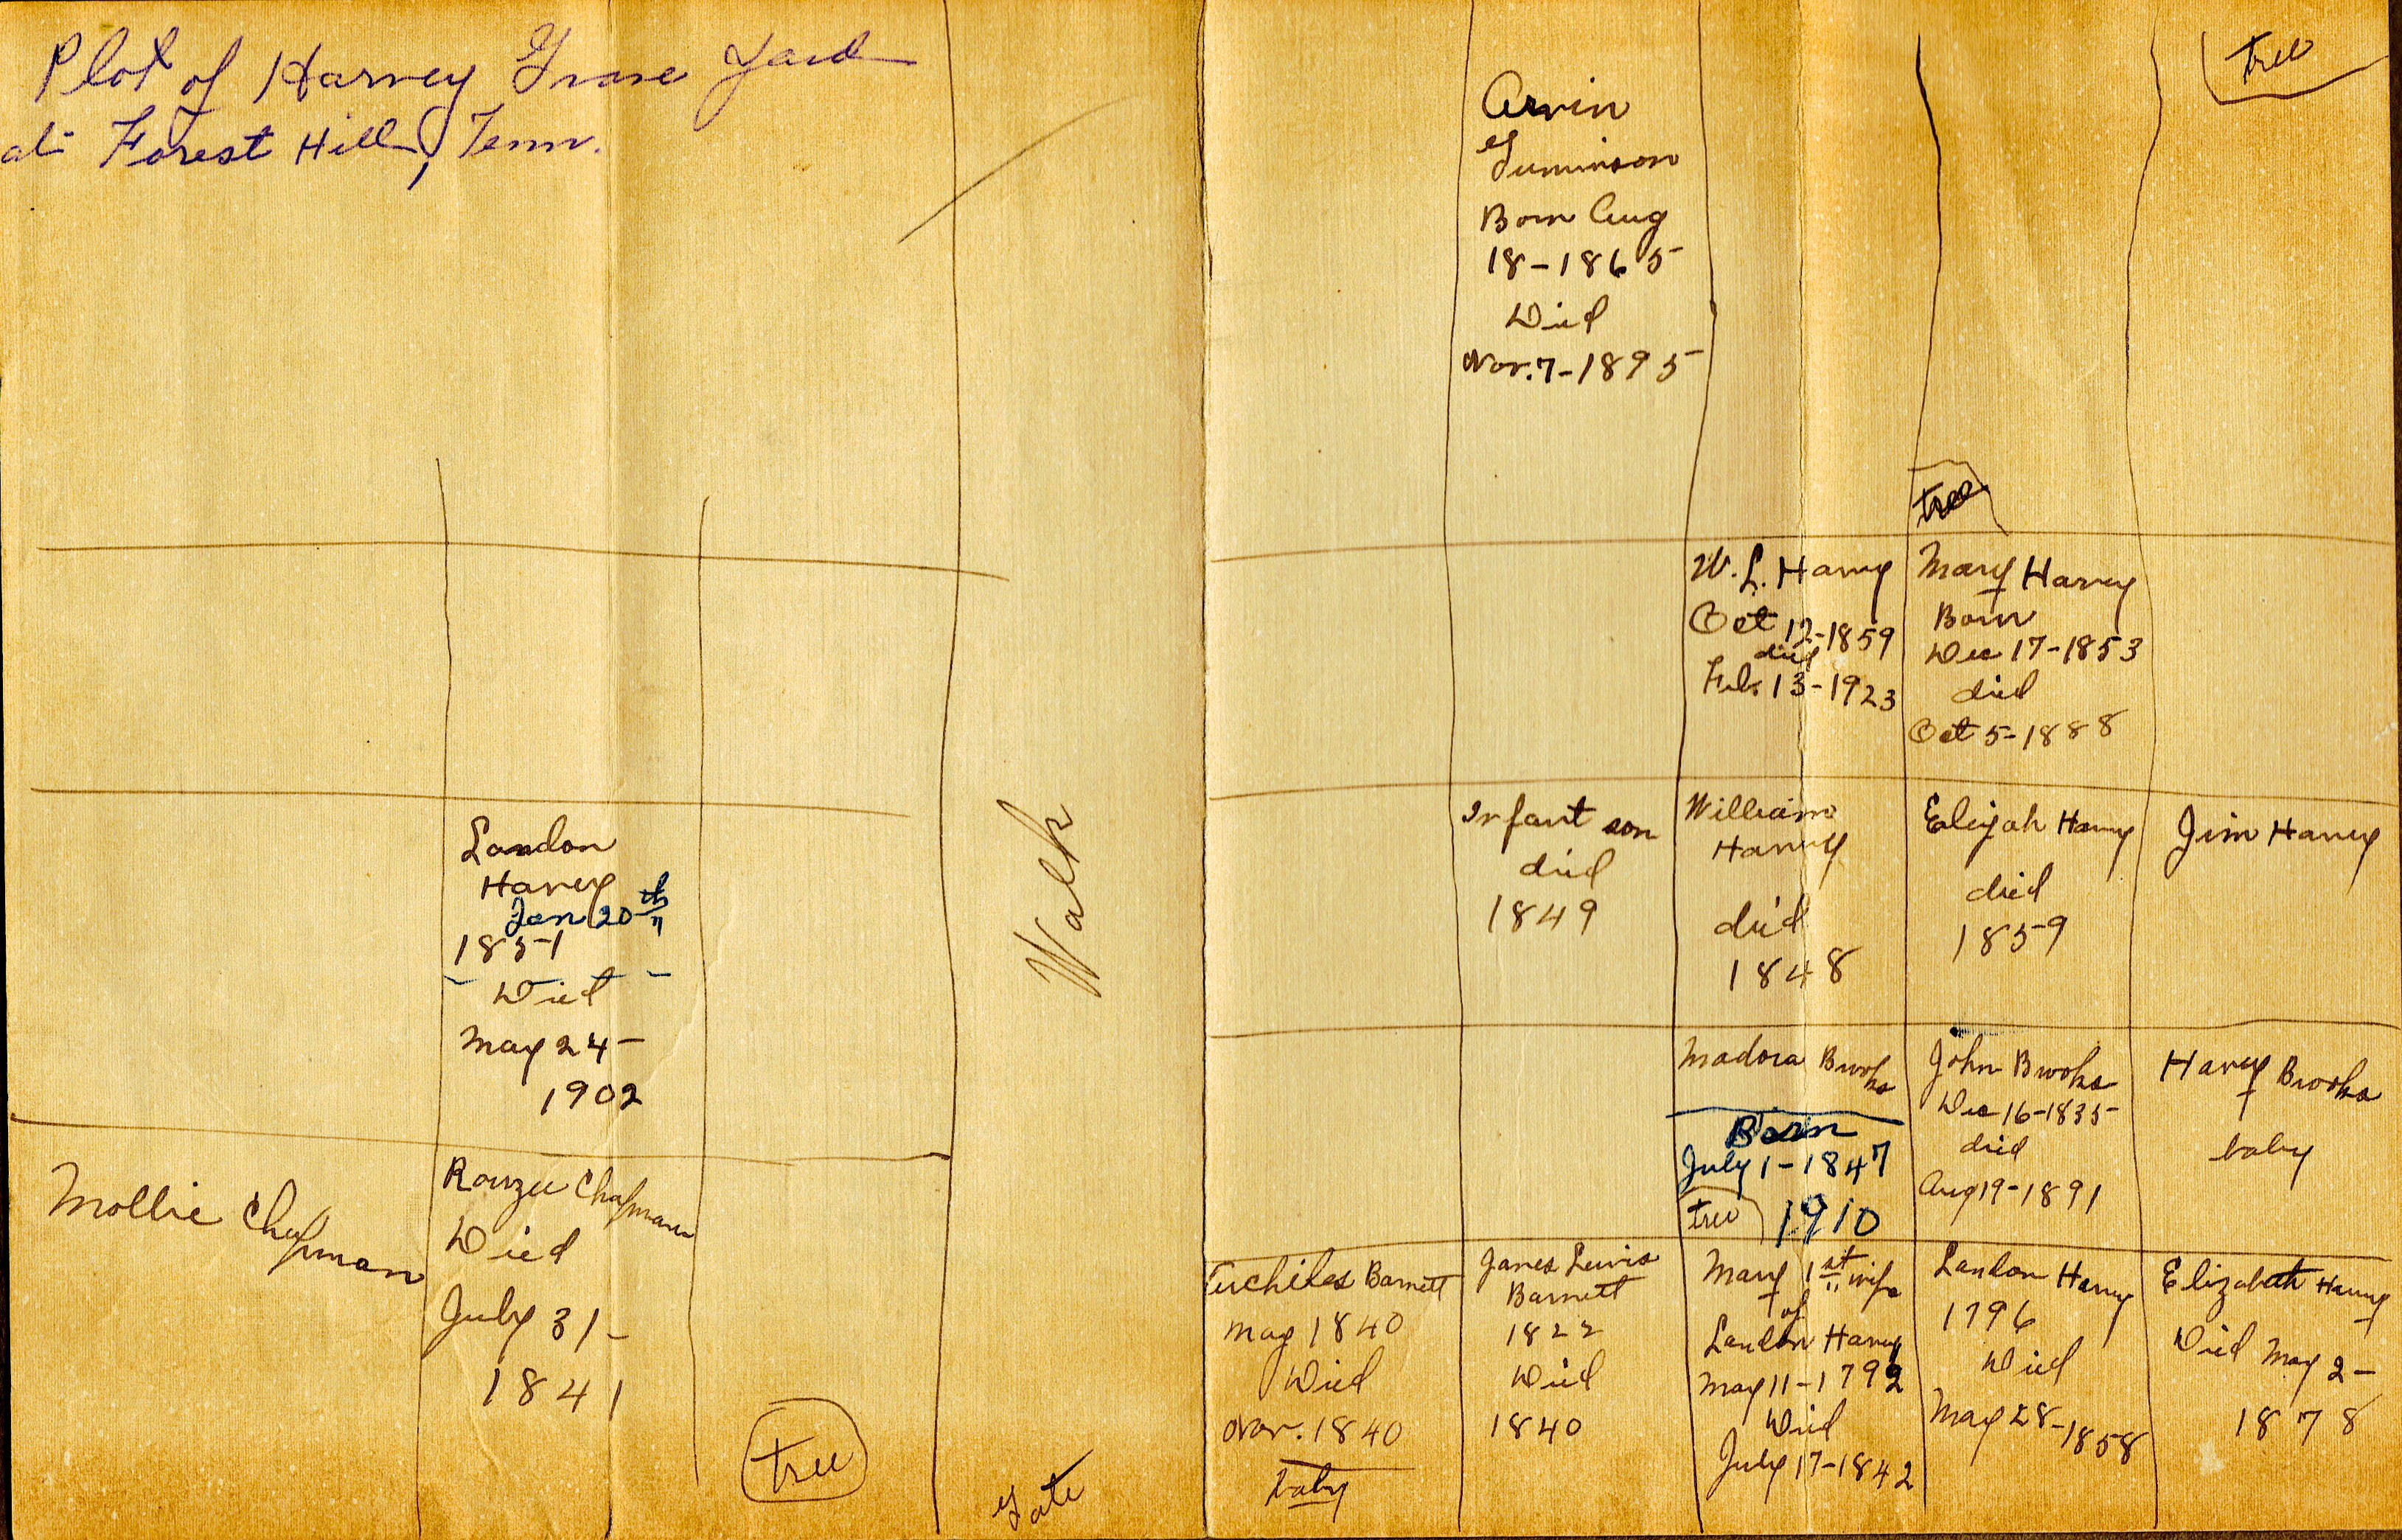 Plot of Harvey Grave Yard
at Forest Hill, Tenn.
Landon
Harvey
Jan 20th
1851
Died
May 24-
1902
Mollie Chapman
Rouzee Chapman
Died
July 31-
1841
tree
Walk
Gate
tree
Arvin
Born Aug
18-1865
Died
Nov. 7-1895
tree
W. L. Harvey
Oct 12-1859
died
Feb. 13-1923
Mary Harvey
Born
Dec 17-1853
died
Oct 5-1888
Infant son
died
1849
William
Harvey
died
1848
Elijah Harvey
died
1859
Jim Harvey
Madora Brooks
Born
July 1-1847
tree 1910
John Brooks
Dec 16-1835
died
Aug 19-1891
Harvey Brooks
baby
Barnett
May 1840
Died
Nov. 1840
baby
James Lewis
Barnett
1822
Died
1840
Mary 1st wife
of
Landon Harvey
May 11-1792
Died
July 17-1842
Landon Harvey
1796
Died
May 28-1858
Elizabeth Harvey
Died May 2-
1878